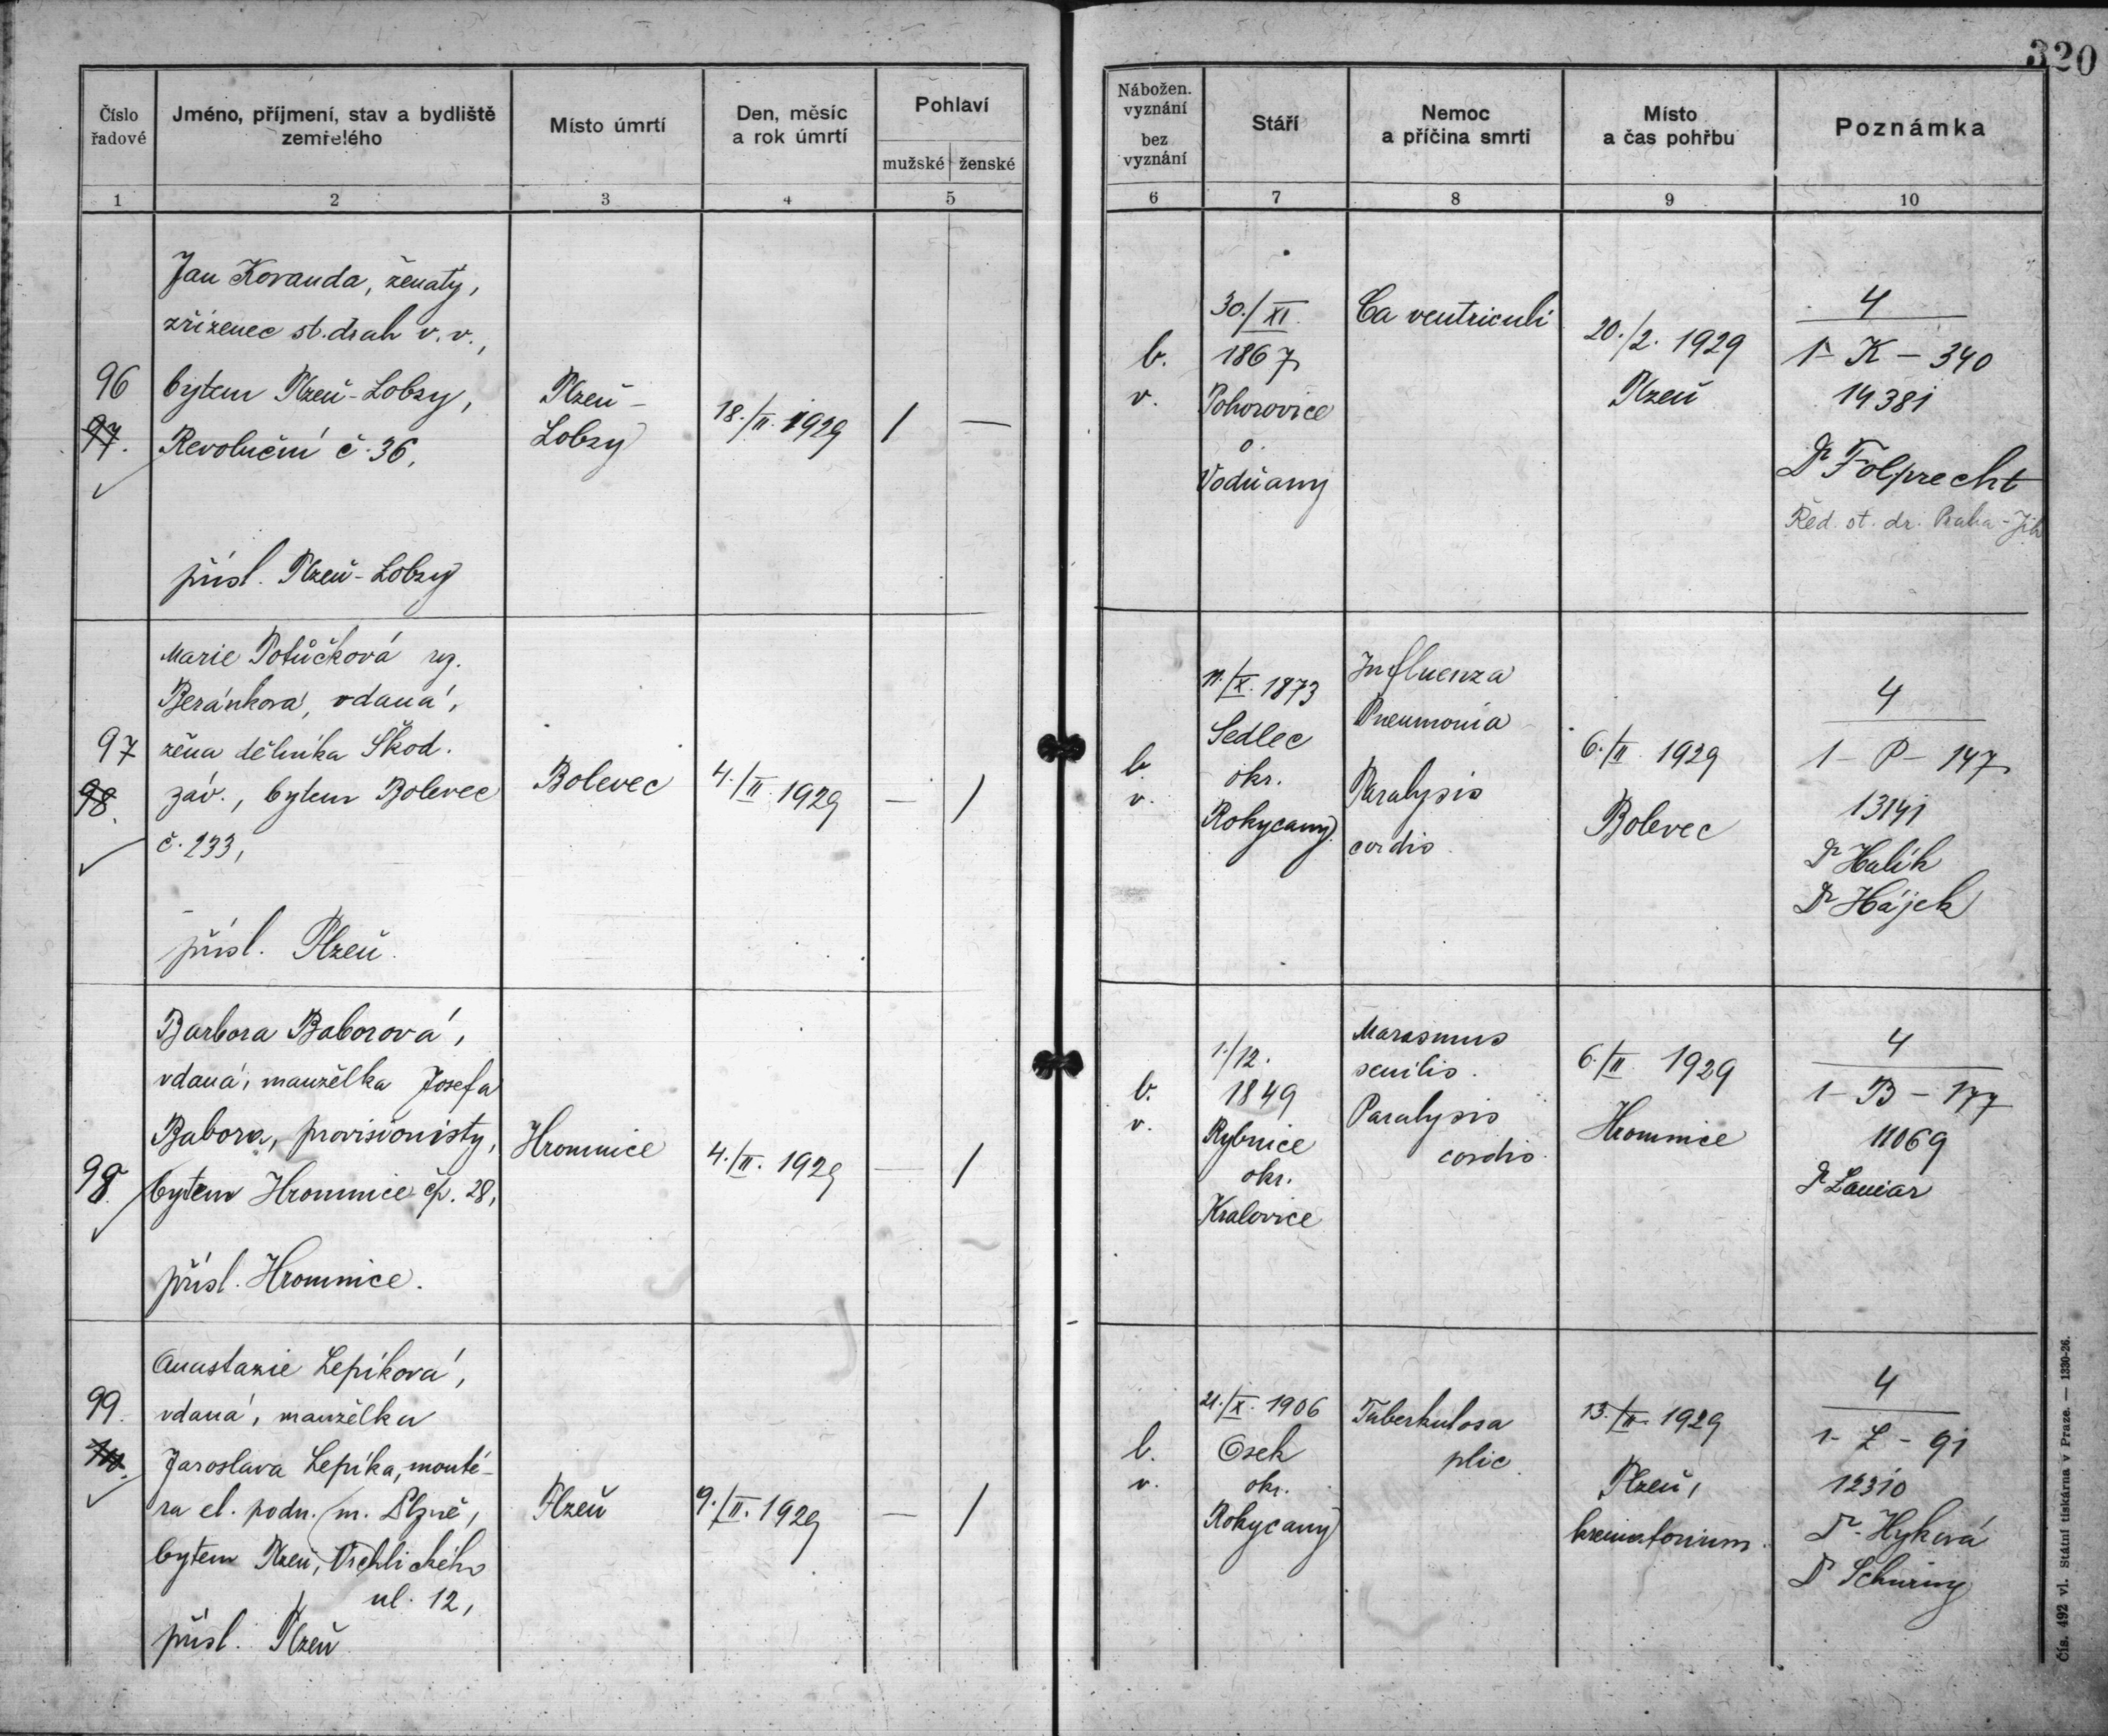 320
Číslo řadové
Jméno, příjmení, stav a bydliště zemřelého
Místo úmrtí
Den, měsíc a rok úmrtí
Pohlaví
mužské
ženské
Nábožen. vyznání
bez vyznání
Stáří
Nemoc a příčina smrti
Místo a čas pohřbu
Poznámka
1
2
3
4
5
6
7
8
9
10
96
97.
Jan Kovanda, ženatý,
zřízenec st. drah v. v.,
bytem Plzeň-Lobzy,
Revoluční č. 36,
přísl. Plzeň-Lobzy
Plzeň-
Lobzy
18./II. 1929
/
—
b.
v.
30./XI.
1867
Pohorovice
o.
Vodňany
Ca ventriculi
20./2. 1929
Plzeň
4
1- K - 340
14381
Dr Folprecht
Řed. st. dr. Praha-Jih
97
98.
Marie Potůčková roz.
Beránková, vdaná,
žena dělníka Škod.
záv., bytem Bolevec
č. 233,
přísl. Plzeň.
Bolevec
4./II. 1929
—
/
b.
v.
11./X. 1873
Sedlec
okr.
Rokycany
Influenza
Pneumonia
Paralysis
cordis.
6./II. 1929
Bolevec
4
1- P - 147
13141
Dr Halík
Dr Hájek
98.
Barbora Baborová,
vdaná, manželka Josefa
Babora, provisionisty,
bytem Hromnice čp. 28,
přísl. Hromnice.
Hromnice
4./II. 1929
—
/
b.
v.
1./12.
1849
Rybnice
okr.
Kralovice
Marasmus
senilis.
Paralysis
cordis.
6./II. 1929
Hromnice
4
1- B - 177
11069
99.
Anastazie Lepíková,
vdaná, manželka
Jaroslava Lepíka, monté-
ra el. podn. m. Plzně,
bytem Plzeň, Vrchlického
ul. 12,
přísl. Plzeň
Plzeň
9./II. 1929
—
/
b.
v.
21./X. 1906
Osek
okr.
Rokycany
Tuberkulosa
plic.
13./II. 1929
Plzeň,
krematorium.
4
1- L - 91
12310
Dr. Hyková
Dr
Čís. 492 vl. Státní tiskárna v Praze. — 1330-26.